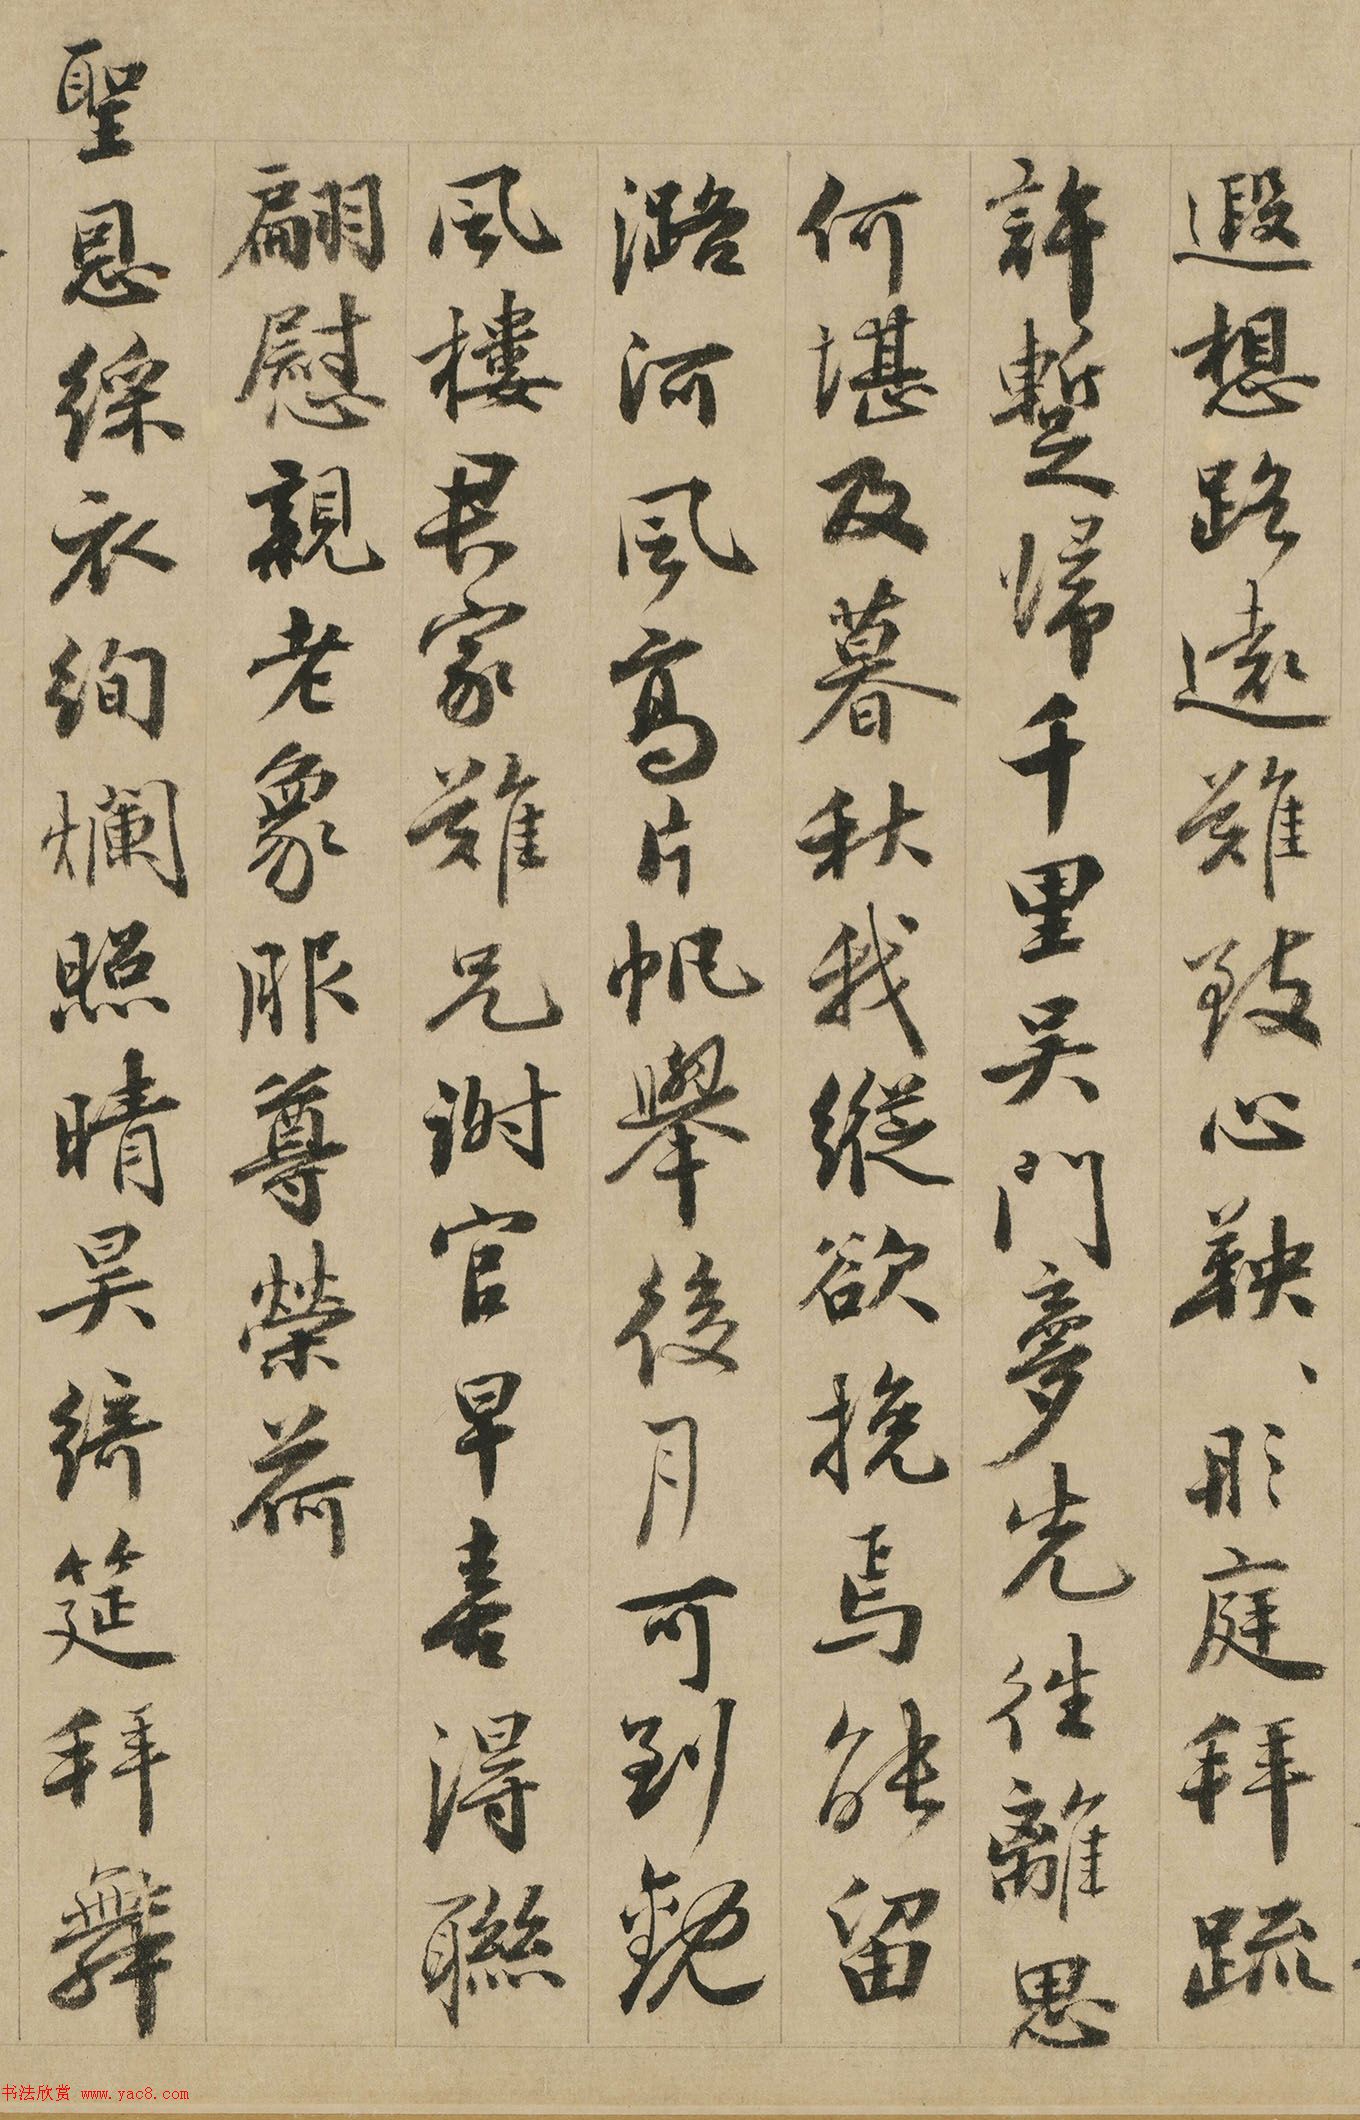 遐想路遠難致心鞅、彤庭拜疏
許暫歸千里吳門夢先往離思
何堪及暮秋我縱欲挽焉能留
潞河風高片帆舉後月可到觀
風樓君家難兄謝官早喜得聯
翩慰親老象服尊榮荷
聖恩綵衣絢爛照晴昊綺筵拜舞
书法欣赏 www.yac8.com